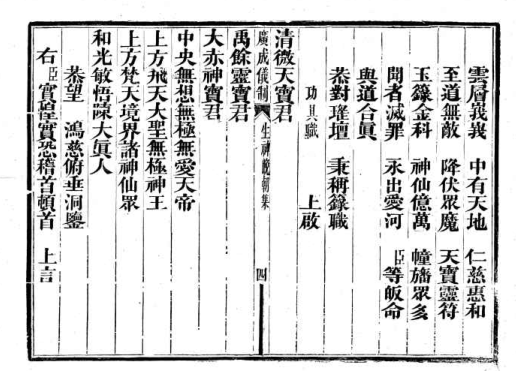 雲層峩峩　中有天地　仁慈惠和
至道無敵　降伏眾魔　天寶靈符
玉籙金科　神仙億萬　幢旛眾多
聞者滅罪　永出愛河　臣等皈命
與道合眞
叅對瑤壇　秉稱籙職
功具職　上啟
清微天寶君
廣成儀制　生神　朝集　四
禹餘靈寶君
大赤神寶君
中央無想無極無愛天帝
上方飛天大聖無極神王
上方梵天境界諸神仙眾
和光敏悟陳大眞人
叅望　鴻慈俯垂洞鑒
右臣　實惶實恐稽首頓首　上言